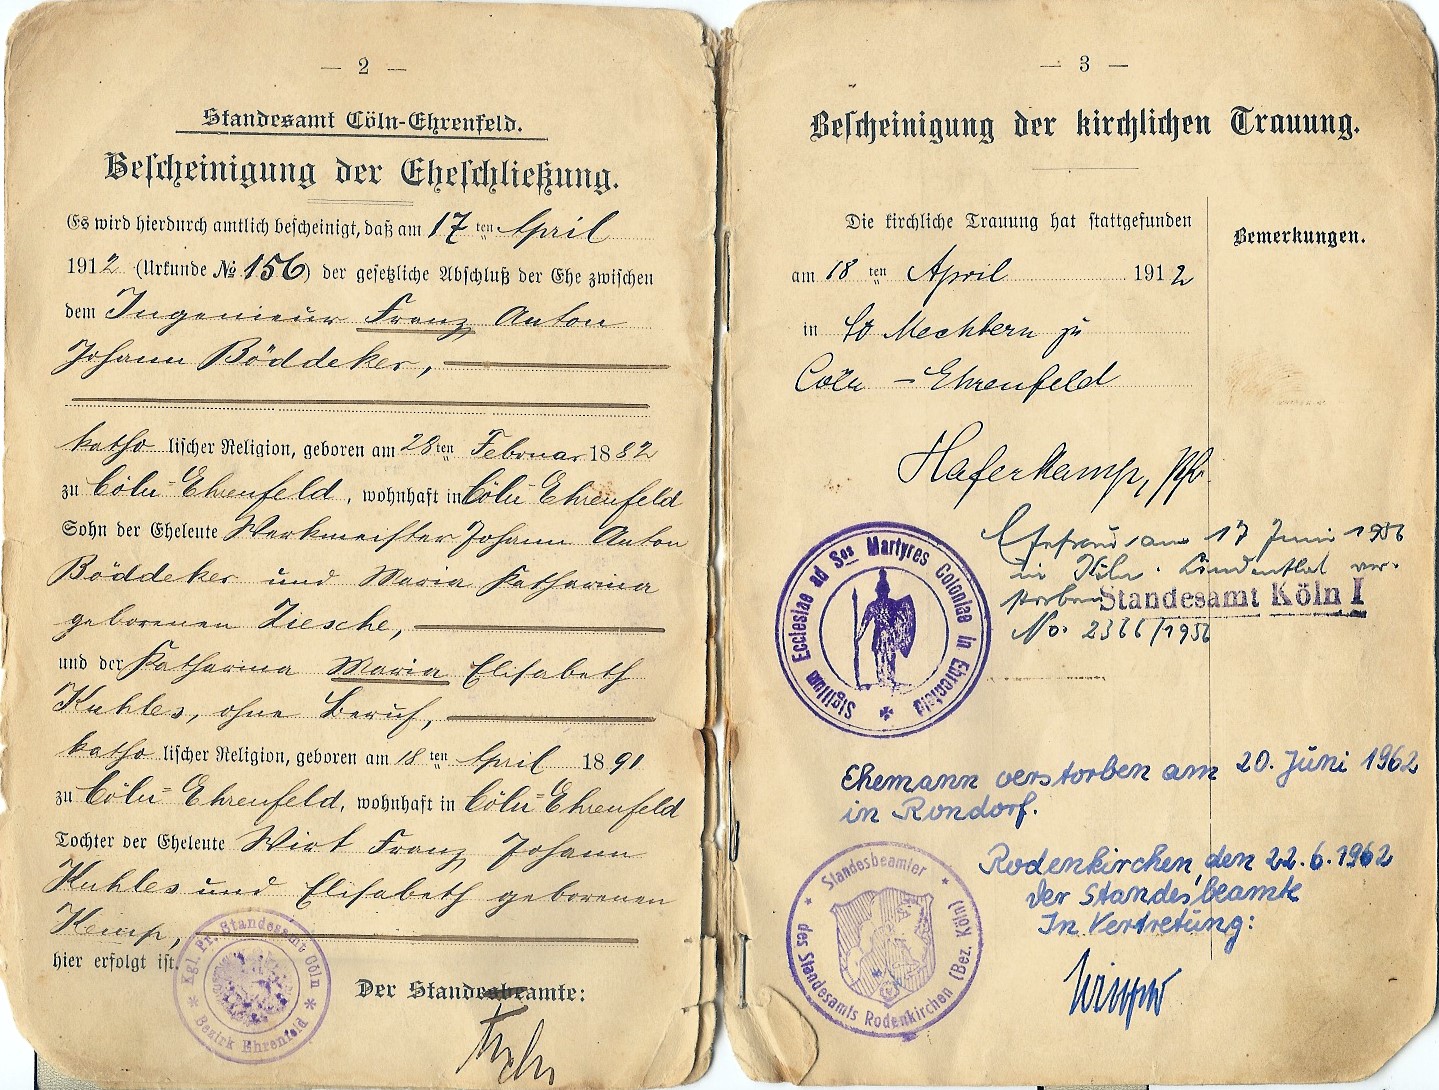 — 2 —
Standesamt Cöln-Ehrenfeld.
Bescheinigung der Eheschließung.
Es wird hierdurch amtlich bescheinigt, daß am 17 ten April
1912 (Urkunde № 156) der gesetzliche Abschluß der Ehe zwischen
dem Ingenieur Franz Anton
Johann Böddeker,
katholischer Religion, geboren am 28 ten Februar 1882
zu Cöln-Ehrenfeld, wohnhaft in Cöln-Ehrenfeld
Sohn der Eheleute Werkmeister Johann Anton
Böddeker und Maria Katharina
geborenen Ziesche,
und der Katharina Maria Elisabeth
Kuhles, ohne Beruf,
katholischer Religion, geboren am 18 ten April 1891
zu Cöln-Ehrenfeld, wohnhaft in Cöln-Ehrenfeld
Tochter der Eheleute Wirt Franz Johann
Kuhles und Elisabeth geborenen
Kemp,
hier erfolgt ist.
Der Standesbeamte:
Kgl. Pr. Standesamt Cöln
Bezirk Ehrenfeld
— 3 —
Bescheinigung der kirchlichen Trauung.
Die kirchliche Trauung hat stattgefunden
Bemerkungen.
am 18 ten April 1912
in St Mechtern zu
Cöln - Ehrenfeld
Haferkamp, Pfr.
Sigillum Ecclesiae ad Sos Martyres Coloniae in Ehrenfeld
Ehefrau am 17 Juni 1956
in Köln-Lindenthal ver-
storben
Standesamt Köln I
No. 2366/1956
Ehemann verstorben am 20. Juni 1962
in Rondorf.
Rodenkirchen, den 22.6.1962
Der Standesbeamte
In Vertretung:
Standesbeamter
des Standesamts Rodenkirchen (Bez. Köln)